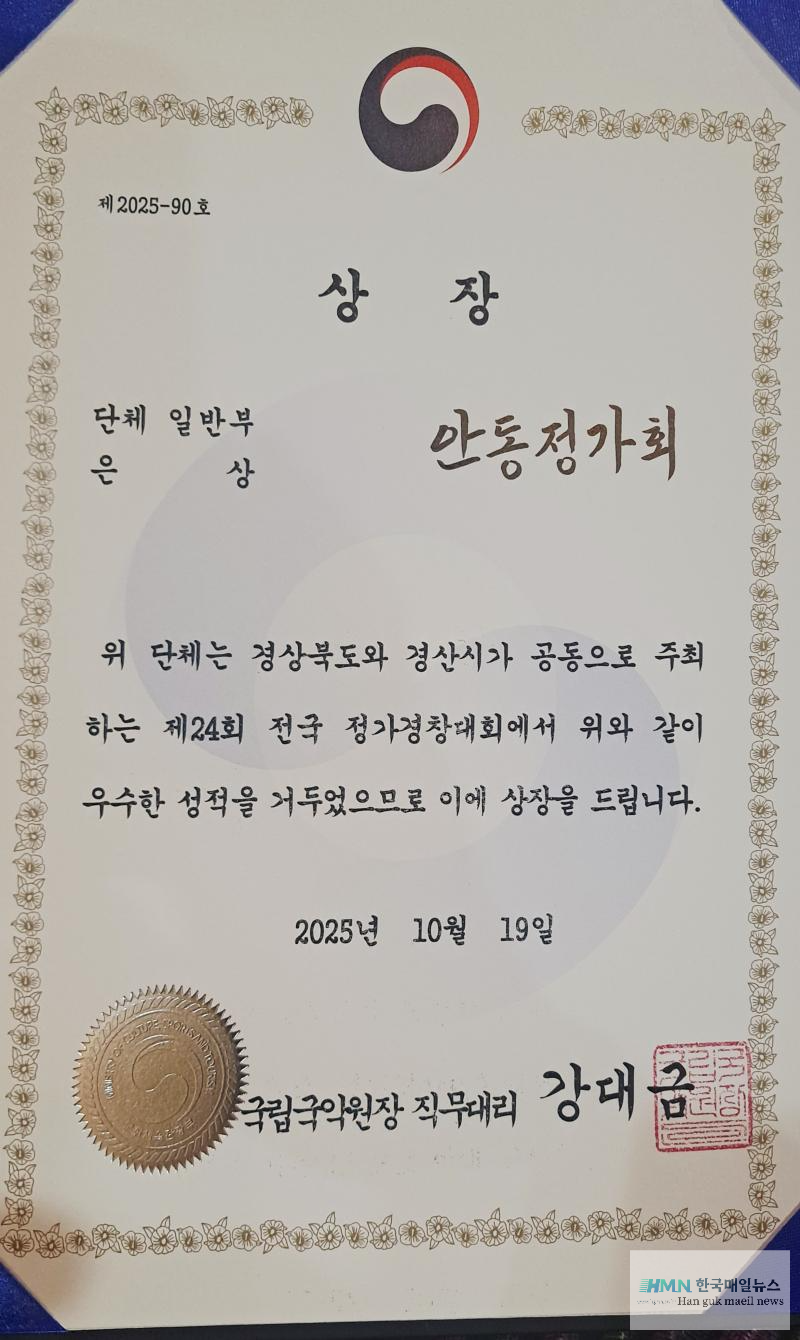 제2025-90호
상 장
단체 일반부
은 상
안동정가회
위 단체는 경상북도와 경산시가 공동으로 주최
하는 제24회 전국 정가경창대회에서 위와 같이
우수한 성적을 거두었으므로 이에 상장을 드립니다.
2025년 10월 19일
MINISTRY OF CULTURE, SPORTS AND TOURISM
국립국악원장 직무대리 강대금
HMN 한국매일뉴스
Han guk maeil news